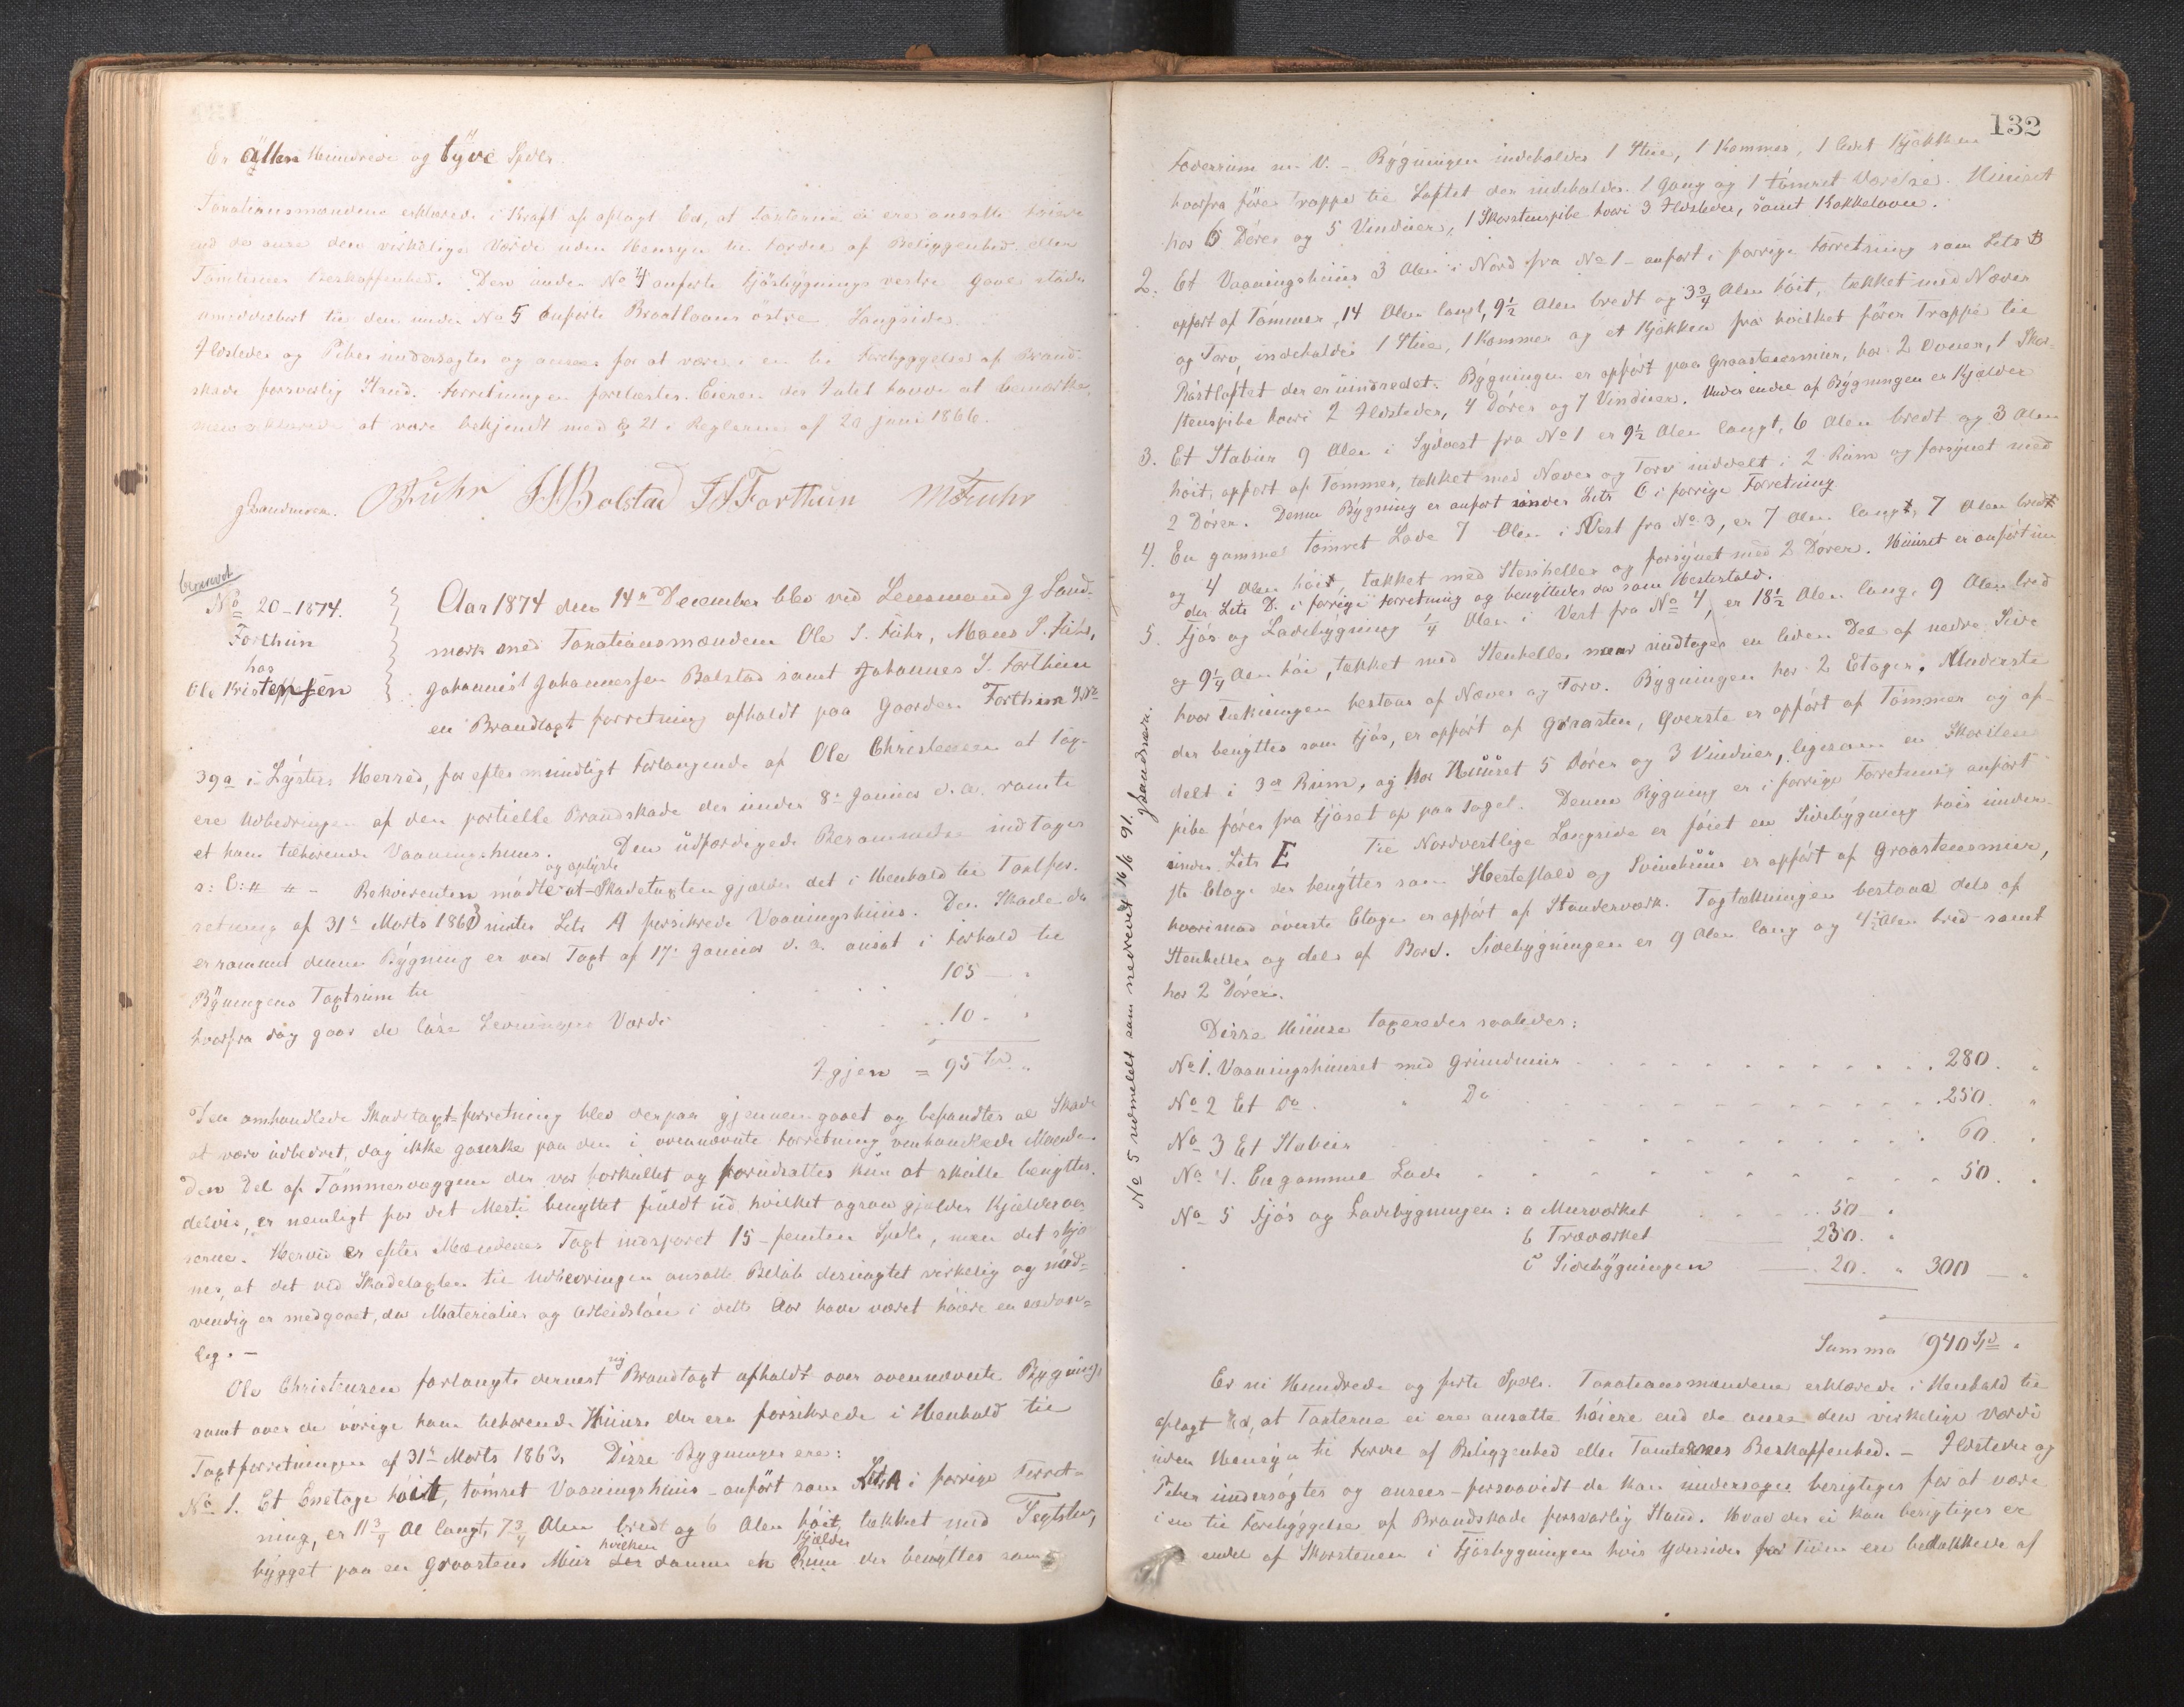 Er atten Hundrede og tyve Spdlr.
Taxationsmændene erklærede i Kraft af aflagt Ed, at Taxterne ei ere ansatte høiere
end de anse den virkelige Værdi uden Hensyn til Fordel af Beliggenhed eller
Tomternes Beskaffenhed. Den under No 4 anførte Fjøsbygnings vestre Gavl støder
umiddelbart til den under No 5 anførte Brøtloens østre Langside.
Ildsteder og Piber undersøgtes og ansees for at være i en til Forebyggelse af Brand-
skade forsvarlig Stand. Forretningen forelæstes. Eieren der Intet havde at bemærke,
men erklærede at være bekjendt med § 21 i Reglerne af 20 juni 1866.
G Sandmark. O Fuhr JJBolstad JSForthun MFuhr
beskrevet
No 20-1874.
Forthun
hos
Ole Kristensen
Aar 1874 den 14de December blev ved Lensmand G Sand-
mark med Taxationsmændene Ole S. Fuhr, Mons S. Fuhr,
Johannes Johannessen Bolstad samt Johannes S. Forthun
en Brandtaxtforretning afholdt paa Gaarden Forthun L No
39a i Lysters Herred, for efter mundtligt Forlangende af Ole Christensen at tax-
ere Udbedringen af den partielle Brandskade der under 8de Januar d. A. ramte
et ham tilhørende Vaaningshuus. Den udfærdigede Berammelse indtages
s: l: # # - Rekvirenten mødte og oplyste at Skadetaxten gjælder det i Henhold til Taxtfor-
retning af 31te Marts 1863 under Litr A forsikrede Vaaningshuus. Den Skade der
er rammet denne Bygning er ved Taxt af 17. Januar d. A. ansat i Forhold til
Bygningens Taxtsum til 105 - "
hvorfra dog gaar de løse Levningers Værdi 10 - "
Igjen = 95 Spd. "
Den omhandlede Skadetaxt-forretning blev derpaa gjennemgaaet og befandtes al Skade
at være udbedret, dog ikke ganske paa den i ovennævnte Forretning omhandlede Maade.
Den Del af Tømmervæggene der var forkullet og forudsattes kun at skulle benyttes
delvis, er nemligt for det Meste benyttet fuldt ud, hvilket ogsaa gjælder Kjælderaa-
serne. Herved er efter Mændenes Taxt indsparet 15 - femten Spdlr, men det skjøn-
nes, at det ved Skadetaxten til Udbedringen ansatte Beløb desuagtet virkelig og nød-
vendig er medgaaet, da Materialier og Arbeidsløn i dette Aar have været høiere en sædvan-
lig. -
Ole Christensen forlangte dernæst ny Brandtaxt afholdt over ovennævnte Bygning,
samt over de øvrige ham tilhørende Huuse der ere forsikrede i Henhold til
Taxtforretningen af 31te Marts 1863. Disse Bygninger ere:
No 1. Et Enetage høit, tømret Vaaningshuus - anført som Litr A i forrige Forret-
ning, er 11 3/4 Al langt, 7 3/4 Alen bredt og 6 Alen høit, tækket med Teglsten,
bygget paa en Graastens Muur hvilken danner et Kjælder Rum der benyttes som
132
Foderrum m. V. - Bygningen indeholder 1 Stue, 1 Kammer, 1 lidet Kjøkken
hvorfra fører Trappe til Loftet der indeholder 1 Gang og 1 tømret Værelse. Huuset
har 6 Døre og 5 Vinduer, 1 Skorstenspibe hvori 3 Ildsteder, samt 1 Kakkelovn.
2. Et Vaaningshuus 3 Alen i Nord fra No 1 - anført i forrige Forretning som Litr B
opført af Tømmer, 14 Alen langt, 9 1/2 Alen bredt og 3 3/4 Alen høit, tækket med Næver
og Torv, indeholder 1 Stue, 1 Kammer og et Kjøkken fra hvilket fører Trappe til
Røstloftet der er uindredet. Bygningen er opført paa Graasteensmuur, har 2 Ovner, 1 Skor-
stenspibe hvori 2 Ildsteder, 4 Døre og 7 Vinduer. Under endel af Bygningen er Kjælder
3. Et Stabuur 9 Alen i Sydvest fra No 1 er 9 1/2 Alen langt, 6 Alen bredt og 3 Alen
høit, opført af Tømmer, tækket med Næver og Torv inddelt i 2 Rum og forsynet med
2 Døre. Denne Bygning er anført under Litr C i forrige Forretning
4. En gammel tømret Lade 7 Alen i Vest fra No 3, er 7 Alen langt, 7 Alen bredt
og 4 Alen høit, tækket med Stenheller og forsynet med 2 Døre. Huuset er anført un-
der Litr D. i forrige Forretning og benyttedes da som Hestestald.
5. Fjøs og Ladebygning 1/4 Alen i Vest fra No 4, er 18 1/2 Alen lang, 9 Alen bred
og 9 1/4 Alen høi, tækket med Stenheller naar undtages en liden Del af nedre Side
hvor Tækningen bestaar af Næver og Torv. Bygningen har 2 Etager. Nederste
der benyttes som Fjøs, er opført af Graasten, Øverste er opført af Tømmer og af-
delt i 3de Rum, og har Huuset 5 Døre og 3 Vinduer, ligesom en Skorsten-
pibe fører fra Fjøset op paa Taget. Denne Bygning er i forrige Forretning anført
under Litr E Til Nordvestlige Langside er føiet en Sidebygning hvis under-
ste Etage der benyttes som Hestestald og Sviinehuus er opført af Graasteensmuur,
hvorimod øverste Etage er opført af Standerværk. Tagtækningen bestaar dels af
Stenheller og dels af Bord. Sidebygningen er 9 Alen lang og 4 1/2 Alen bred samt
har 2 Døre.
No 5 udmeldt som nedrevet 16/6 91. GSandmark.
Disse Huuse taxeredes saaledes:
No 1. Vaaningshuuset med Grundmuur 280. "
No 2 Et Do " Do 250. "
No 3 Et Stabuur 60. "
No 4. En gammel Lade 50. "
No 5 Fjøs og Ladebygningen: a Murværket 50 "
b Træværket 230. "
c Sidebygningen 20. " 300 - "
Summa 940 Spd "
Er ni Hundrede og førti Spdlr. Taxationsmændene erklærede i Henhold til
aflagt Ed, at Taxterne ei ere ansatte høiere end de anse den virkelige Værdi
uden Hensyn til Fordel af Beliggenhed eller Tomternes Beskaffenhed. - Ildsteder og
Piber undersøgtes og ansees - forsaavidt de kan undersøges besigtiges for at være
i en til Forebyggelse af Brandskade forsvarlig Stand. Hvad der ei kan besigtiges er
endel af Skorstenen i Fjøsbygningen hvis Ydersider for Tiden ere bedækkede af